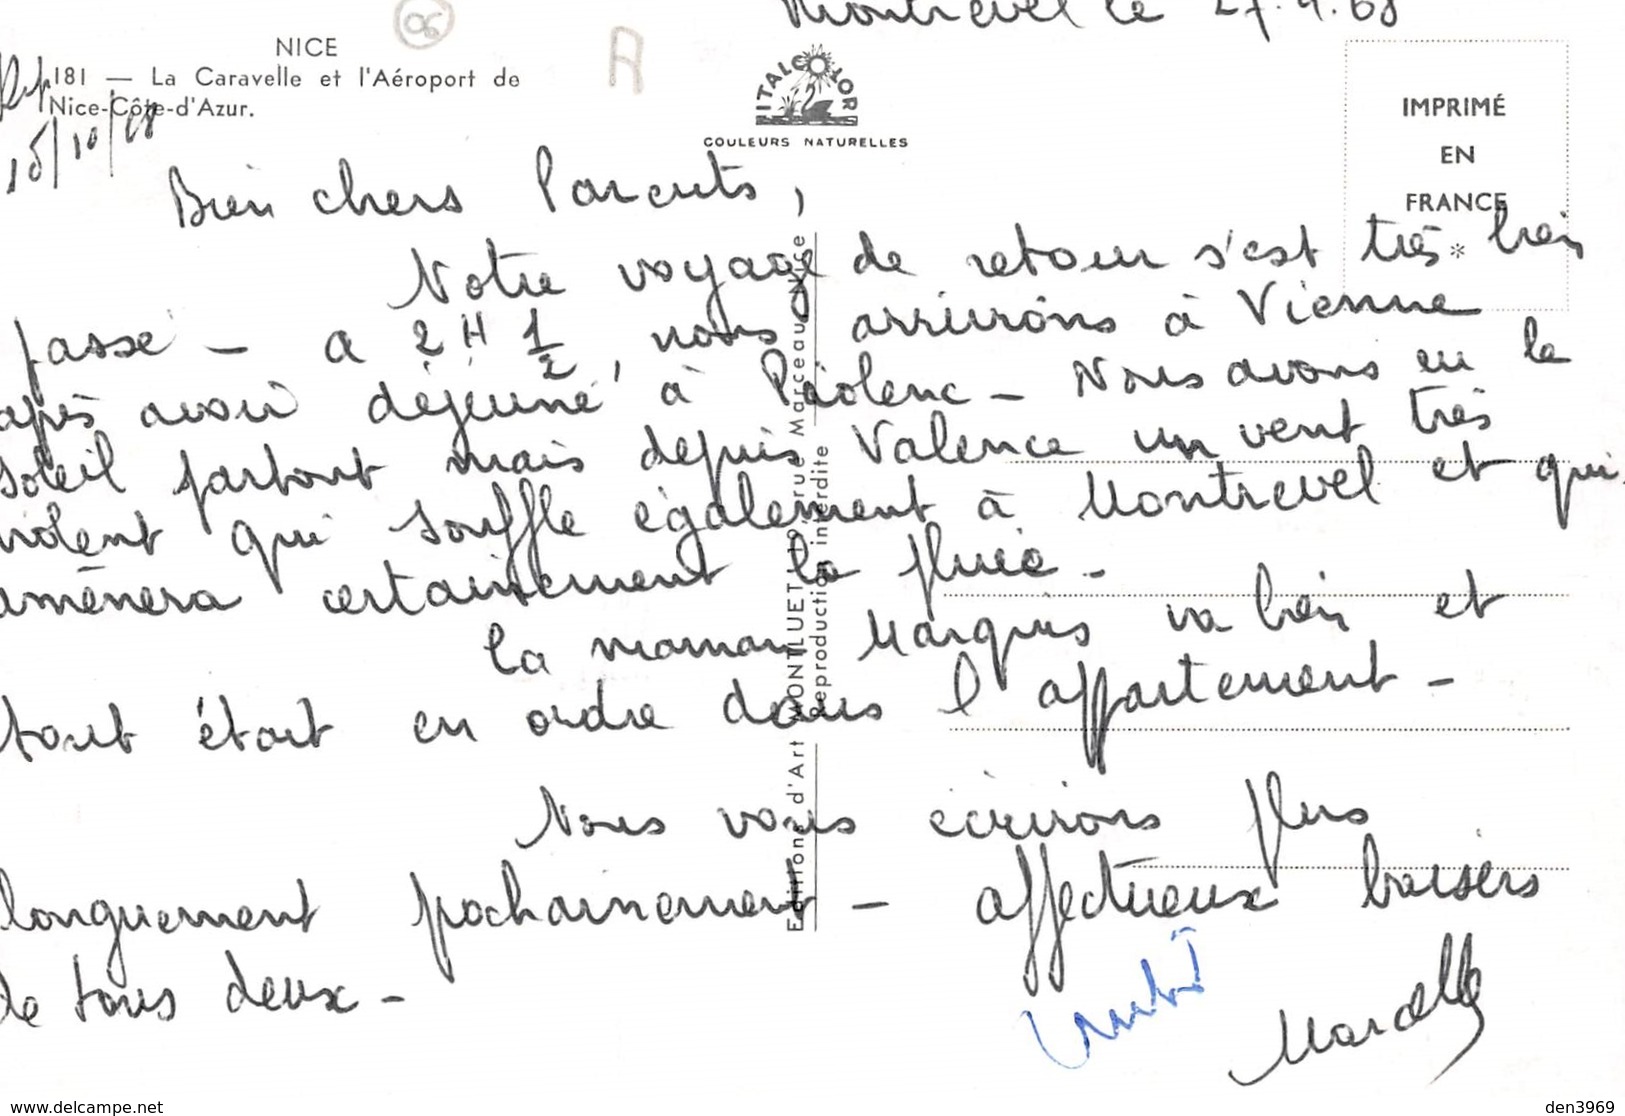 Montrevel le 27.9.68
NICE
181 — La Caravelle et l'Aéroport de
Nice-Côte-d'Azur.
Rép
15/10/68
R
ITALCOLOR
COULEURS NATURELLES
IMPRIMÉ
EN
FRANCE
*
Bien chers Parents,
Notre voyage de retour s'est très bien
passé - a 2 H 1/2, nous arrivions à Vienne
après avoir déjeuné à Piolenc - Nous avons eu le
soleil partout mais depuis Valence un vent très
violent qui souffle également à Montrevel et qui
amènera certainement la pluie.
La maman Marquis va bien et
tout était en ordre dans l'appartement -
Nous vous écrirons plus
longuement prochainement - affectueux baisers
de tous deux -
Marcelle
Editions d'Art MONTLUET 19, rue Marceau, Nice
Reproduction interdite
www.delcampe.net
den3969